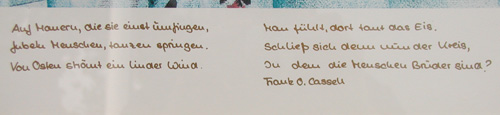 Auf Mauern, die sie einst umfingen,
jubeln Menschen, tanzen springen.
Von Osten strömt ein linder Wind.
Man fühlt, dort taut das Eis.
Schließ sich denn nun der Kreis,
In dem die Menschen Brüder sind?
Frank O. Cassell